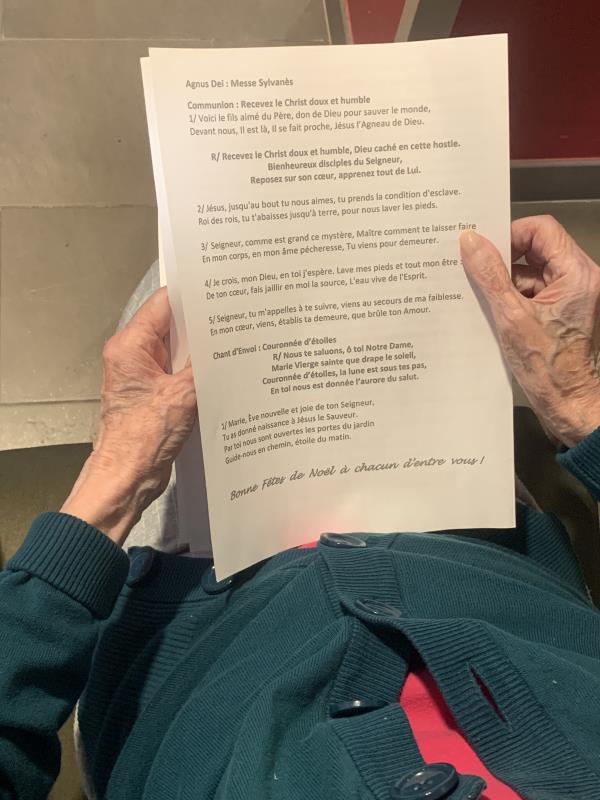 Agnus Dei : Messe Sylvanès
Communion : Recevez le Christ doux et humble
1/ Voici le fils aimé du Père, don de Dieu pour sauver le monde,
Devant nous, Il est là, Il se fait proche, Jésus l'Agneau de Dieu.
R/ Recevez le Christ doux et humble, Dieu caché en cette hostie.
Bienheureux disciples du Seigneur,
Reposez sur son cœur, apprenez tout de Lui.
2/ Jésus, jusqu'au bout tu nous aimes, tu prends la condition d'esclave.
Roi des rois, tu t'abaisses jusqu'à terre, pour nous laver les pieds.
3/ Seigneur, comme est grand ce mystère, Maître comment te laisser faire
En mon corps, en mon âme pécheresse, Tu viens pour demeurer.
4/ Je crois, mon Dieu, en toi j'espère. Lave mes pieds et tout mon être :
De ton cœur, fais jaillir en moi la source, L'eau vive de l'Esprit.
5/ Seigneur, tu m'appelles à te suivre, viens au secours de ma faiblesse.
En mon cœur, viens, établis ta demeure, que brûle ton Amour.
Chant d'Envoi : Couronnée d'étoiles
R/ Nous te saluons, ô toi Notre Dame,
Marie Vierge sainte que drape le soleil,
Couronnée d'étoiles, la lune est sous tes pas,
En toi nous est donnée l'aurore du salut.
1/ Marie, Ève nouvelle et joie de ton Seigneur,
Tu as donné naissance à Jésus le Sauveur.
Par toi nous sont ouvertes les portes du jardin
Guide-nous en chemin, étoile du matin.
Bonne Fêtes de Noël à chacun d'entre vous !